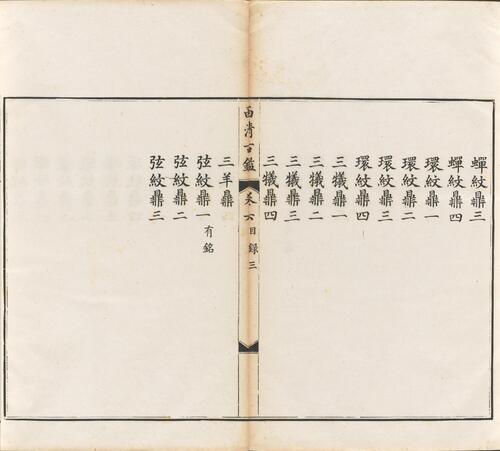 蟬紋鼎三
蟬紋鼎四
環紋鼎一
環紋鼎二
環紋鼎三
環紋鼎四
三犧鼎一
三犧鼎二
三犧鼎三
三犧鼎四
西清古鑑 卷六目録 三
三羊鼎
弦紋鼎一有銘
弦紋鼎二
弦紋鼎三